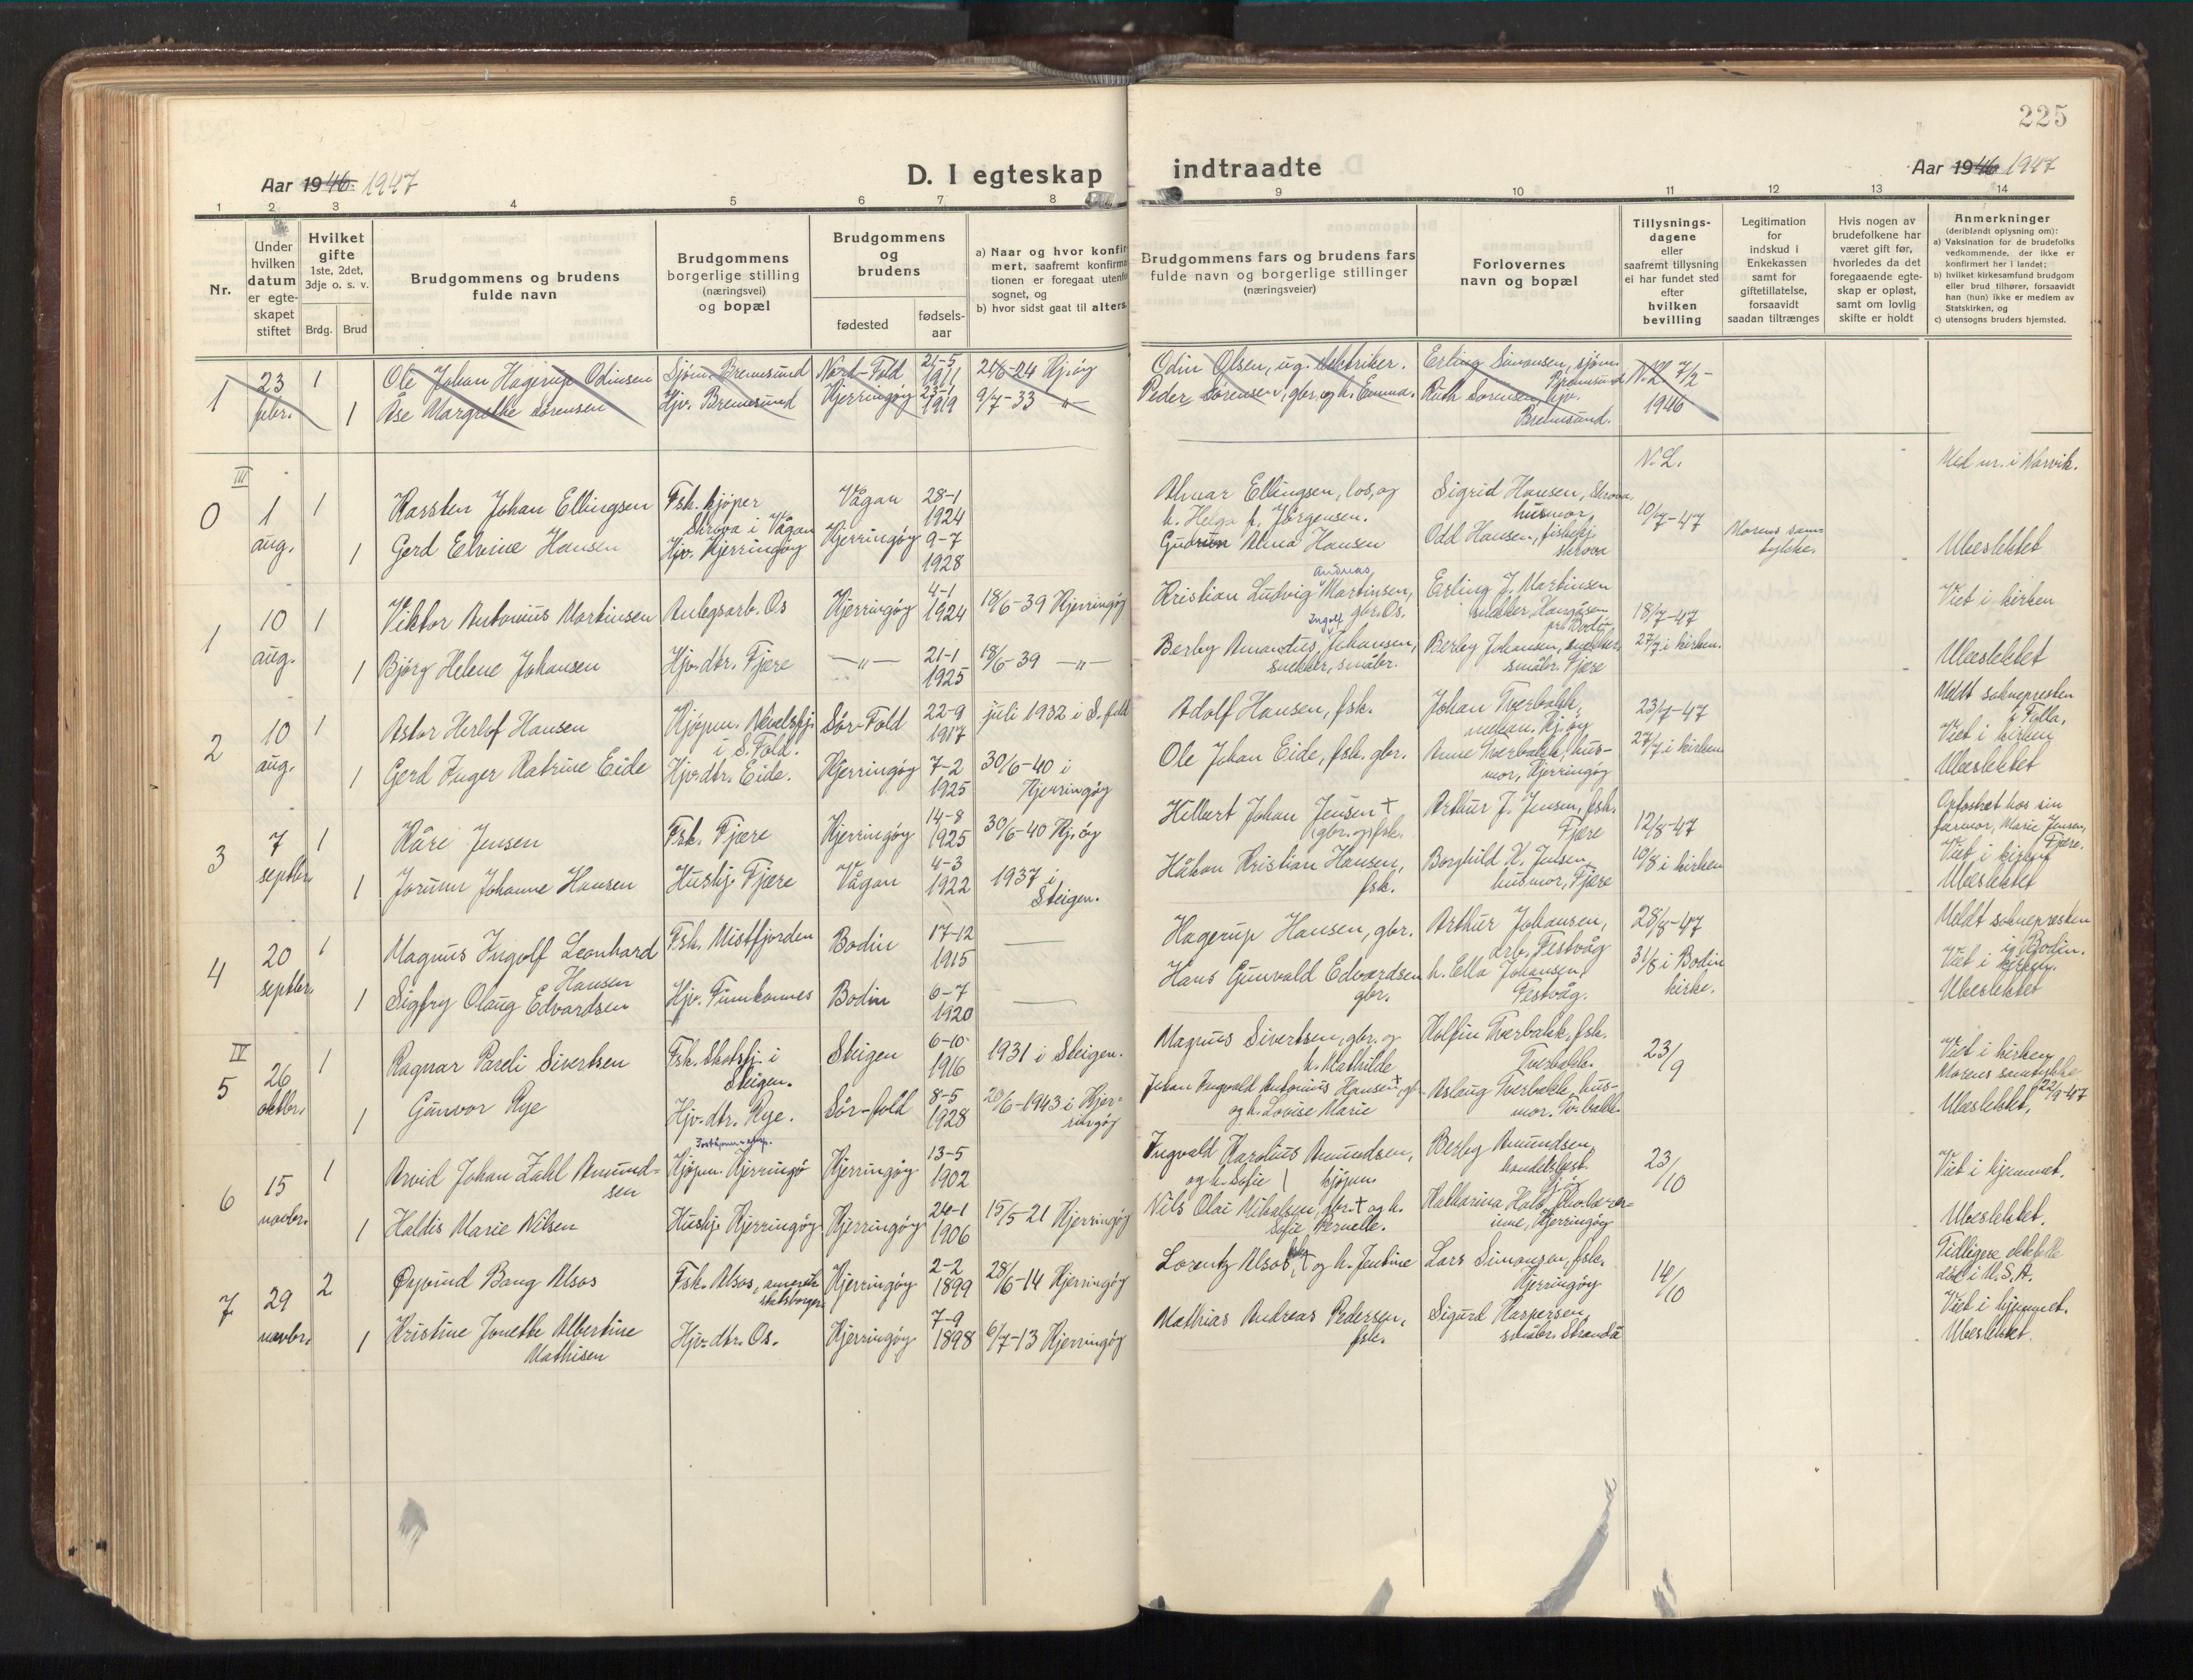 225
Aar 1946. 1947
D. I egteskap indtraadte
Aar 1946 1947
1 2 3 4 5 6 7 8 9 10 11 12 13 14
Nr.
Under
hvilken
datum
er egte-
skapet
stiftet
Hvilket
gifte
1ste, 2det,
3dje o. s. v.
Brdg. Brud
Brudgommens og brudens
fulde navn
Brudgommens
borgerlige stilling
(næringsvei)
og bopæl
Brudgommens
og
brudens
fødested
fødsels-
aar
a) Naar og hvor konfir
mert, saafremt konfirma
tionen er foregaat utenfo
sognet, og
b) hvor sidst gaat til alters.
Brudgommens fars og brudens fars
fulde navn og borgerlige stillinger
(næringsveier)
Forlovernes
navn og bopæl
Tillysnings-
dagene
eller
saafremt tillysning
ei har fundet sted
efter
hvilken
bevilling
Legitimation
for
indskud i
Enkekassen
samt for
giftetillatelse,
forsaavidt
saadan tiltrænges
Hvis nogen av
brudefolkene har
været gift før,
hvorledes da det
foregaaende egte-
skap er opløst,
samt om lovlig
skifte er holdt
Anmerkninger
(deriblandt oplysning om):
a) Vaksination for de brudefolks
vedkommende, der ikke er
konfirmert her i landet;
b) hvilket kirkesamfund brudgom
eller brud tilhører, forsaavidt
han (hun) ikke er medlem av
Statskirken, og
c) utensogns bruders hjemsted.
1
23
febr.
1
Ole Johan Hagerup Odinsen
Sjøm. Bremsund
Nord-Fold
21-5
1911
24/6-24 Kj.øy
Odin Olsen, ug. elektriker.
Erling Simonsen, sjøm.
Bremsund
N.L. 7/2-
1946
1
Åse Margrethe Sørensen
Hjv. Bremsund
Kjerringøy
1919
9/7-33 "
Peder Sørensen, gbr. og h. Emma.
Ruth Sørensen, hjv.
Bremsund.
III
0
1
aug.
1
Karsten Johan Ellingsen
Fsk. kjøper
Skrova i Vågan
Vågan
28-1
1924
Almar Ellingsen, los, og
h. Helga f. Jørgensen.
Sigrid Hansen, Skrova,
husmor,
N.L.
10/7-47
Med ur. i Narvik.
1
Gerd Elvine Hansen
Hjv. Kjerringøy
Kjerringøy
9-7
1928
Gudrun Alma Hansen
Odd Hansen, fiskekj.
Skrova
Morens sam-
tykke.
Ubeslektet
1
10
aug.
1
Viktor Antonius Martinsen
Anlegsarb. Os
Kjerringøy
4-1
1924
18/6-39 Kjerringøy
Andreas
Kristian Ludvig Martinsen,
gbr. Os.
Erling J. Martinsen
snekker,
pr. Bodin
18/7-47
Viet i kirken
1
Bjørg Helene Johansen
Hjv. dtr. Fjære
—"—
21-1
1925
18/6-39 —"—
Ingolf
Berby Amandus Johansen,
snekker, småbr.
Berby Johansen, snekker,
småbr. Fjære
27/7 i kirken.
Ubeslektet
2
10
aug.
1
Astor Herlof Hansen
Kjøpm. Nevelsfj.
i S. Fold.
Sør-Fold
22-9
1917
juli 1932 i S. fold
Adolf Hansen, fsk.
Johan Tverbakk,
mekan. Kj.øy
23/7-47
Meldt soknepresten
i Folla.
Viet i kirken
1
Gerd Inger Katrine Eide
Hjv. dtr. Eide.
Kjerringøy
7-2
1925
30/6-40 i
Kjerringøy
Ole Johan Eide, fsk. gbr.
Anne Tverbakk, hus-
mor, Kjerringøy
27/7 i kirken
Ubeslektet
3
7
septbr.
1
Kåre Jensen
Fsk. Fjære
Kjerringøy
14-8
1925
30/6-40 Kj.øy
Hilbert Johan Jensen †
gbr. og fsk.
Arthur J. Jensen, fsk.
Fjære
12/8-47
Opfostret hos sin
farmor, Marie Jensen,
Fjære.
Viet i kirken
1
Jorunn Johanne Hansen
Hushj. Fjære
Vågan
4-3
1922
1937 i
Steigen.
Håkon Kristian Hansen,
fsk.
Borghild K. Jensen,
husmor, Fjære
10/8 i kirken
Ubeslektet
4
20
septbr.
1
Magnus Ingolf Leonhard
Hansen
Fsk. Mistfjorden
Bodin
17-12
1915
—
Hagerup Hansen, gbr.
Arthur Johansen,
arb. Festvåg
28/8-47
Meldt soknepresten
i Bodin.
Viet i kirken.
1
Sigfry Olaug Edvardsen
Hjv. Tunkonnes
Bodin
6-7
1920
—
Hans Gunvald Edvardsen
gbr.
h. Ella Johansen,
Festvåg.
31/8 i Bodin
kirke.
Ubeslektet
IV
5
26
oktbr.
1
Ragnar Pareli Sivertsen
Fsk. Skotsfj. i
Steigen.
Steigen
6-10
1916
1931 i Steigen.
Magnus Sivertsen, gbr. og
h. Mathilde
Kolfin Tverbakk, fsk.
Tverbakk.
23/9
Viet i kirken
Morens samtykke
22/9-47
1
Gunvor Rye
Hjv. dtr. Rye.
Sør-fold
8-5
1928
20/6-1943 i Kjer-
ringøy
Johan Ingvald Antonius Hansen †, gbr
og h. Lovise Marie
Aslaug Tverbakk, hus-
mor. Tv.bakk.
Ubeslektet,
6
15
novbr.
1
Arvid Johan Zahl Amund-
sen
Kjøpm. Kjerringø
Kjerringøy
13-5
1902
Ingvald Karolius Amundsen,
og h. Sofie kjøpm.
Berby Amundsen,
handelsbest.
Kj.øy
23/10
Viet i hjemmet.
1
Haldis Marie Nilsen
Hushj. Kjerringøy
Kjerringøy
24-1
1906
15/5-21 Kjerringøy
Nils Olai Mikalsen, gbr. † og h.
Sofie Pernelle.
Katharina
Kjerringøy
Ubeslektet.
7
29
novbr.
2
Øyvind Bang Alsos
Fsk. Alsos, amerik.
statsborger
Kjerringøy
2-2
1899
28/6-14 Kjerringøy
Lorentz Alsos † og h. Jentine
Lars Simonsen, fsk.
Kjerringøy
14/10
Tidligere ektefelle
død i U.S.A.
Viet i hjemmet.
1
Kristine Jonette Albertine
Mathisen
Hjv. dtr. Os.
Kjerringøy
7-9
1898
6/7-13 Kjerringøy
Mathias Andreas Pedersen,
fsk.
Sigurd Kaspersen,
småbr. Strandå
Ubeslektet.